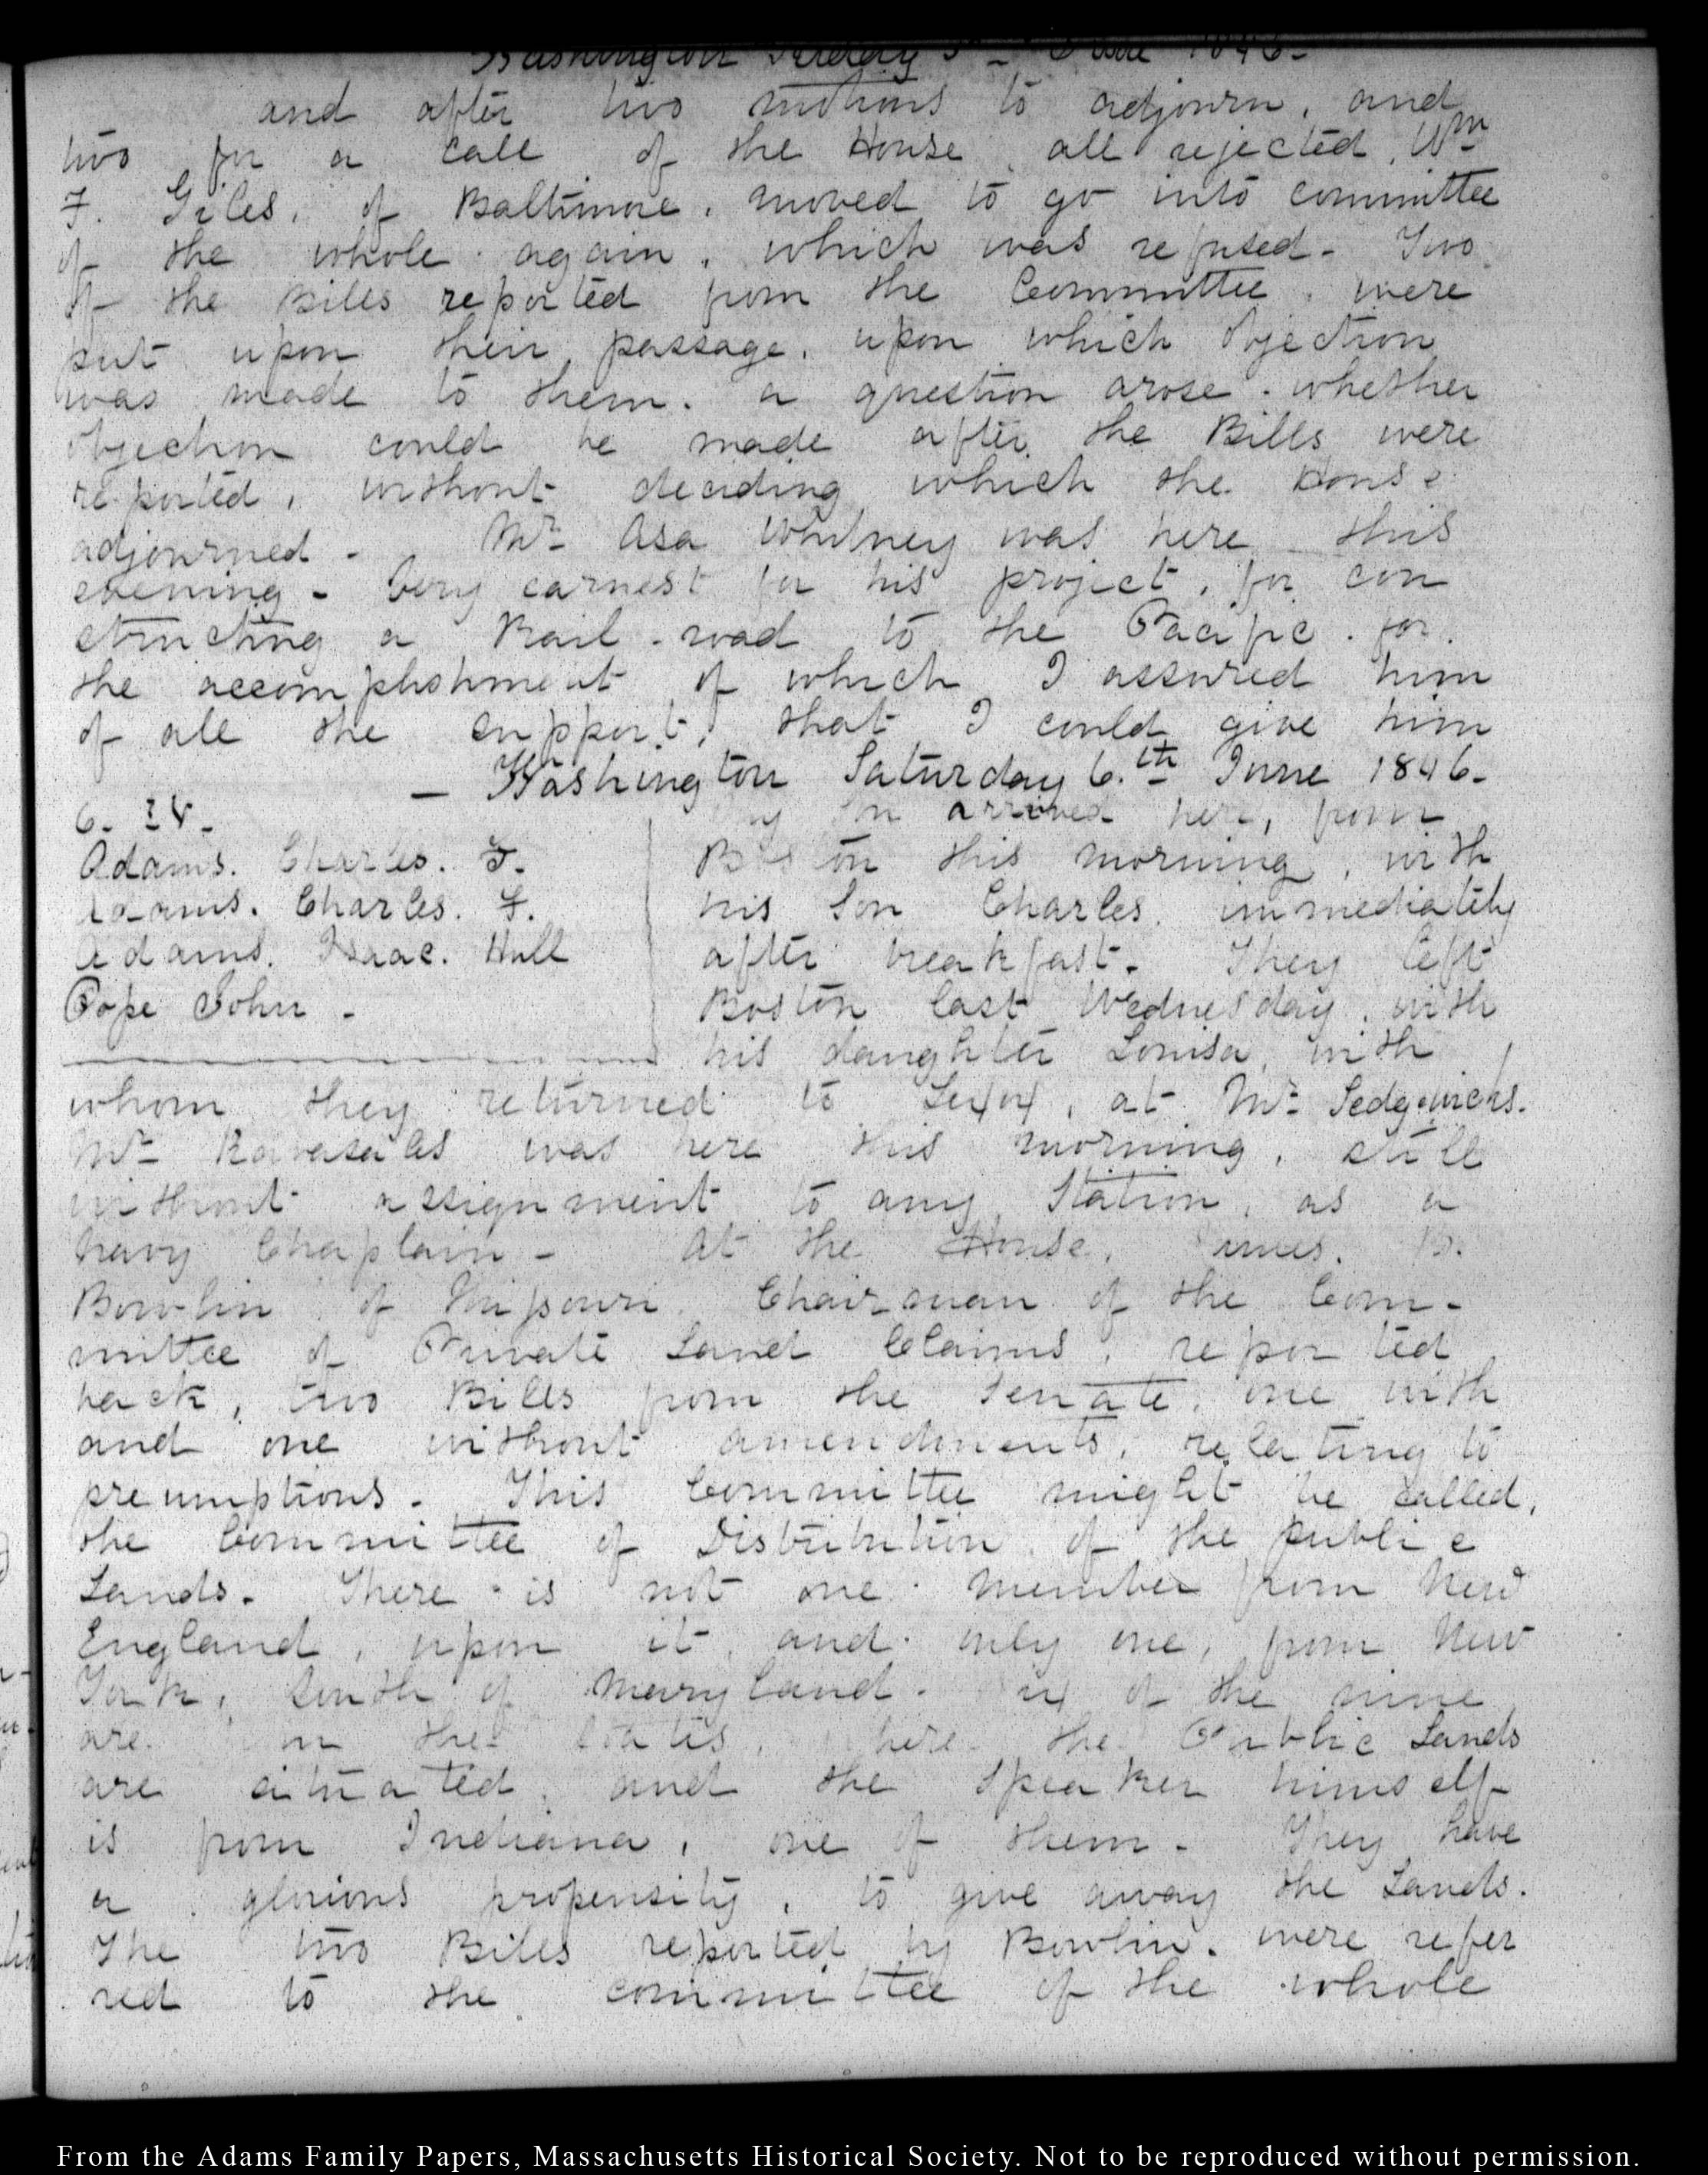 Washington Friday 5th June 1846-
and after two motions to adjourn, and
two for a call of the House all rejected, Wm
F. Giles, of Baltimore, moved to go into committee
of the whole again, which was refused- Two
of the Bills reported from the Committee, were
put upon their passage, upon which objection
was made to them. a question arose. whether
objection could be made after the Bills were
reported, without deciding which the House
adjourned - Mr Asa Whitney was here this
evening - Very earnest for his project, for con
structing a Rail-road to the Pacific. for
the accomplishment of which I assured him
of all the support, that I could give him
— Washington Saturday 6.th June 1846-
6. IV.
Adams. Charles. F.
Adams. Charles. F.
Adams. Isaac. Hull
Pope John -
My Son arrived here, from
Boston this morning, with
his Son Charles, immediately
after breakfast. They left
Boston last Wednesday, with
his daughter Louisa, with
whom they returned to , at Mr Sedgwicks.
Mr was here this morning, still
without assignment to any Station, as a
Navy Chaplain - At the House, James. B.
Bowlin of Missouri Chairman of the Com-
mittee of Private Land Claims, reported
back, two Bills from the Senate, one with
and one without amendments, relating to
preumptions. This Committee might be called,
the Committee of Distribution of the public
Lands. There is not one member from New
England, upon it, and only one, from New
York, South of Maryland. Six of the nine
are from the States, where the Public Lands
are situated, and the Speaker himself
is from Indiana, one of them. They have
a glorious propensity, to give away the Lands.
The two Bills reported by Bowlin. were refer
red to the committee of the whole
From the Adams Family Papers, Massachusetts Historical Society. Not to be reproduced without permission.